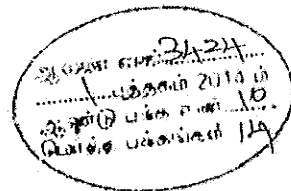 ஆவண எண் 3424
1 புத்தகம் 2014 ம்
ஆண்டு பக்க எண் 10
மொத்த பக்கங்கள் 14